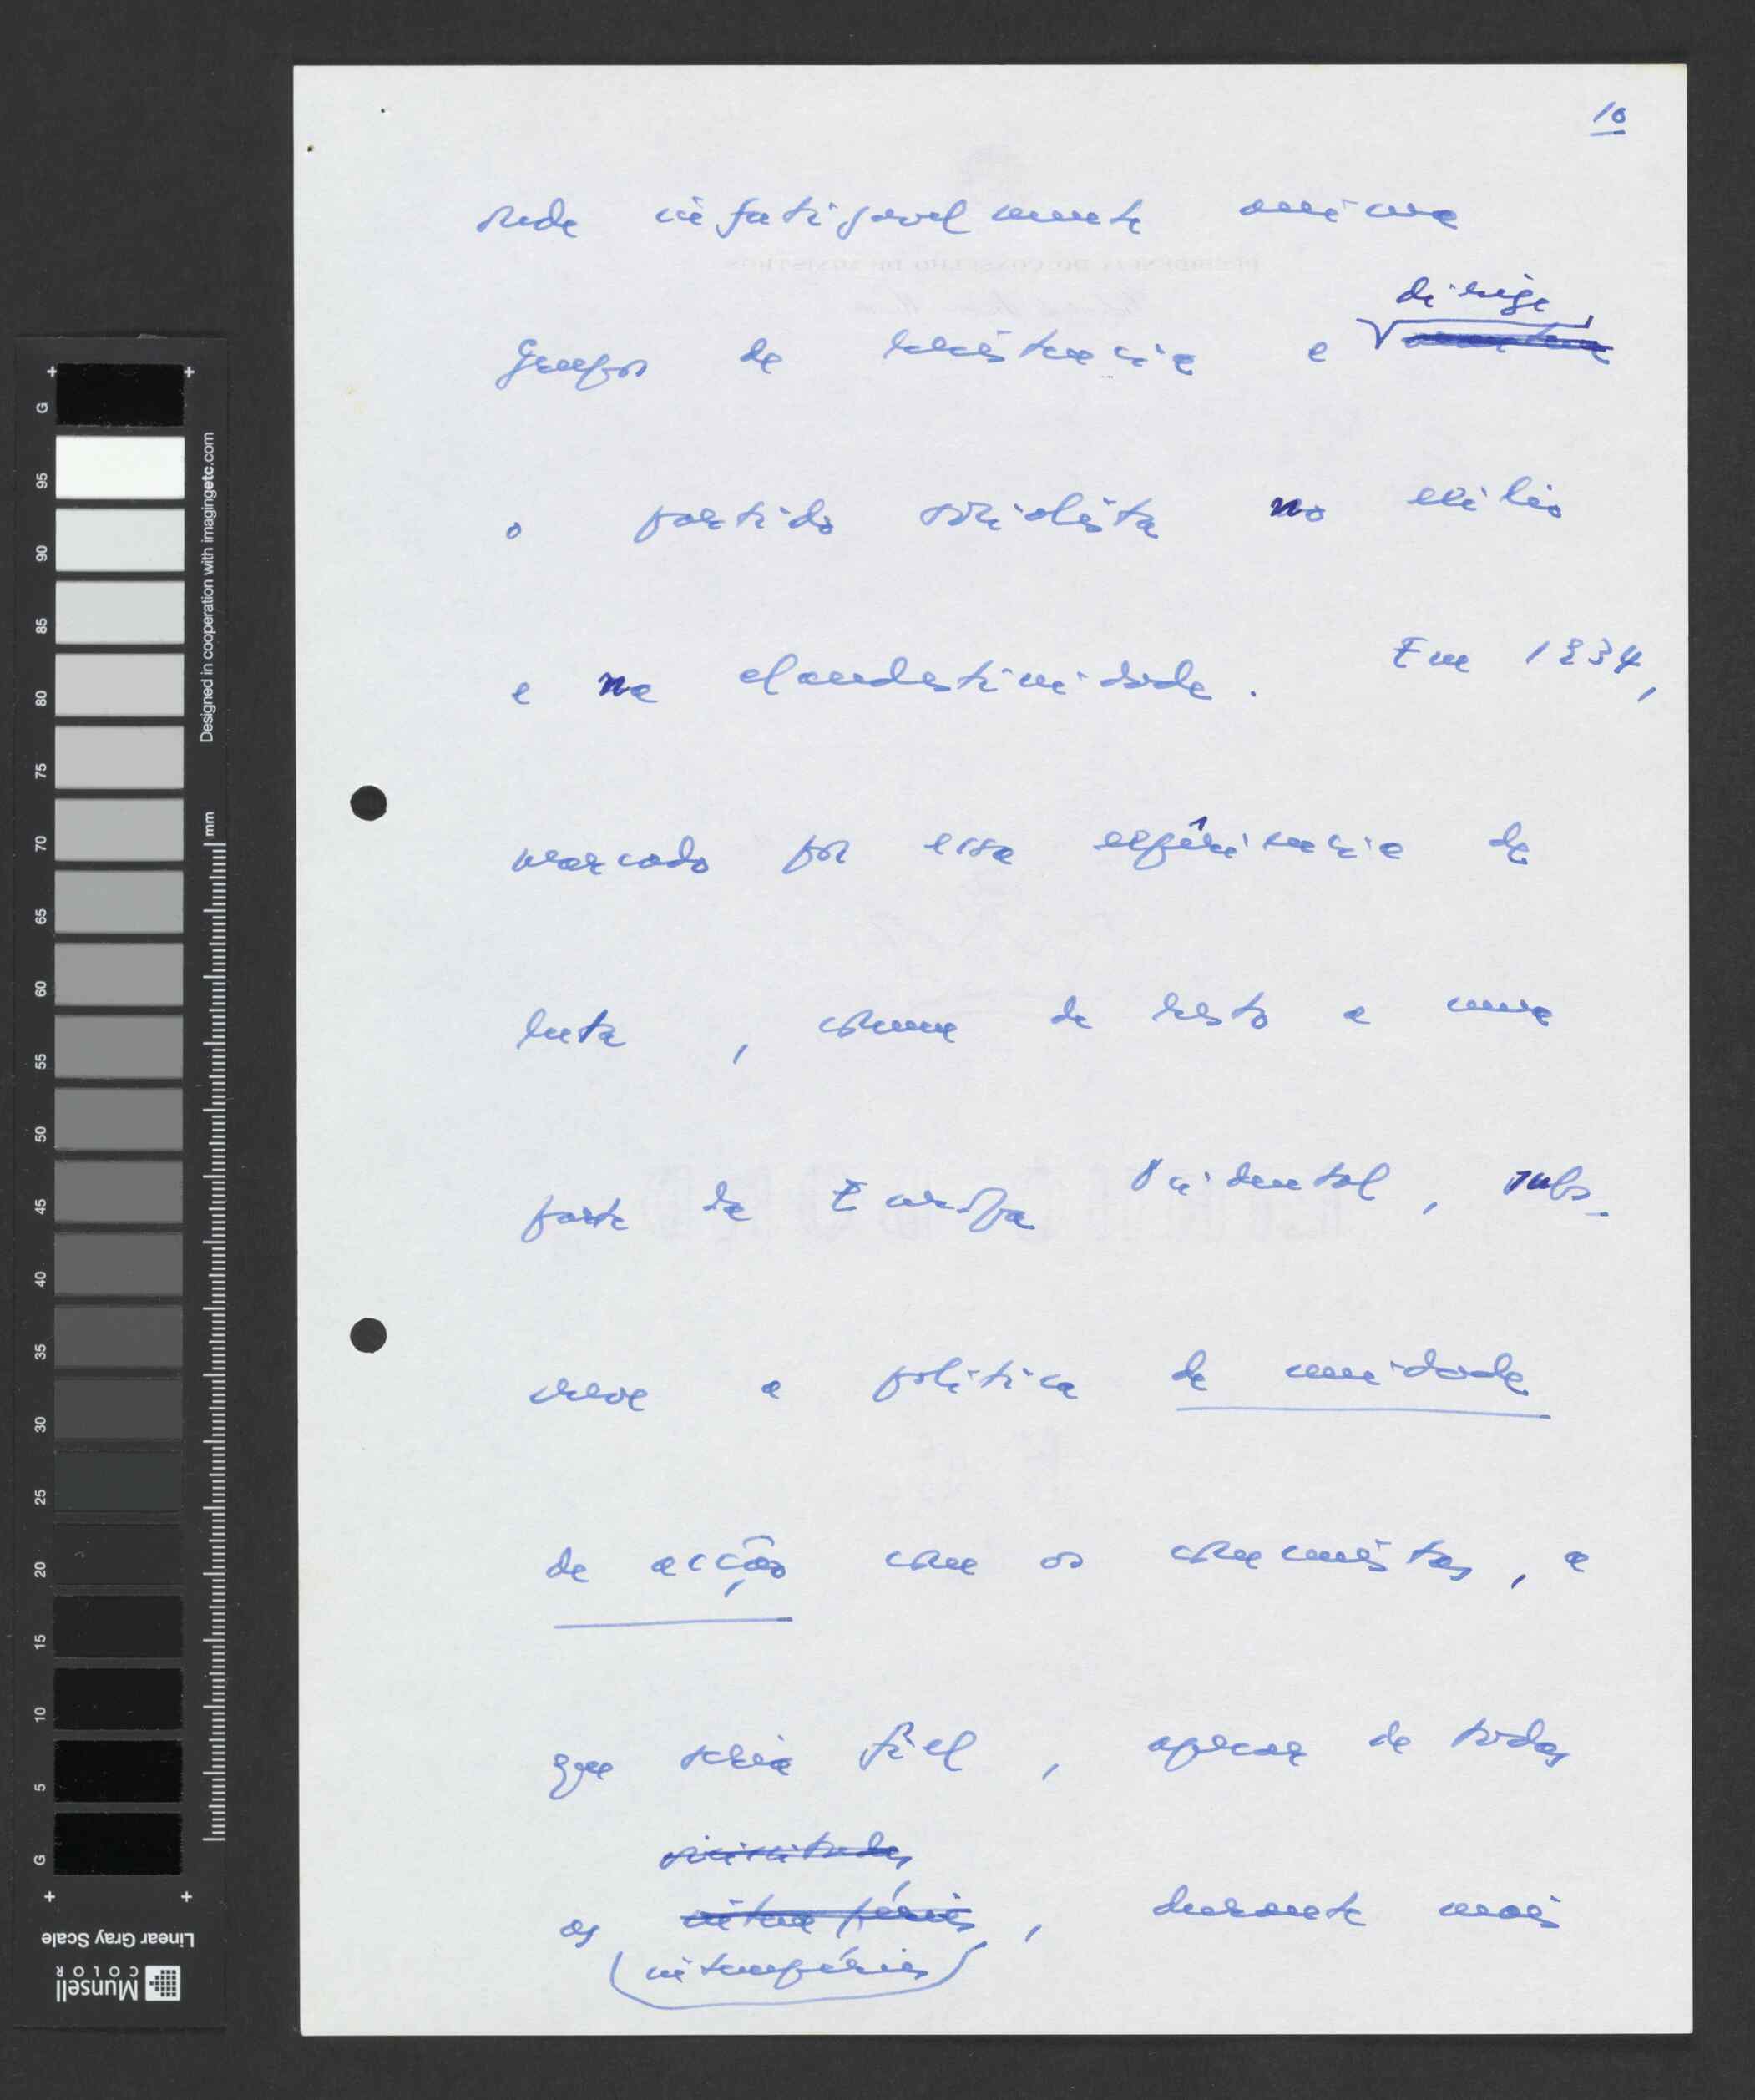 10
onde infatigavelmente anima
dirige
grupos de resistência e
o partido socialista no exílio
e na clandestinidade. Em 1934,
marcado por essa expêriencia de
luta, comum de resto a uma
parte da Europa Ocidental, subs-
creve a política de unidade
de acção com os comunistas, a
que seria fiel, apesar de todas
vicissitudes
as intempéries, durante mais
(intempéries)
G 95 90 85 80 75 70 65 60 55 50 45 40 35 30 25 20 15 10 5 G
Designed in cooperation with imagingetc.com
mm
Linear Gray Scale
Munsell
COLOR